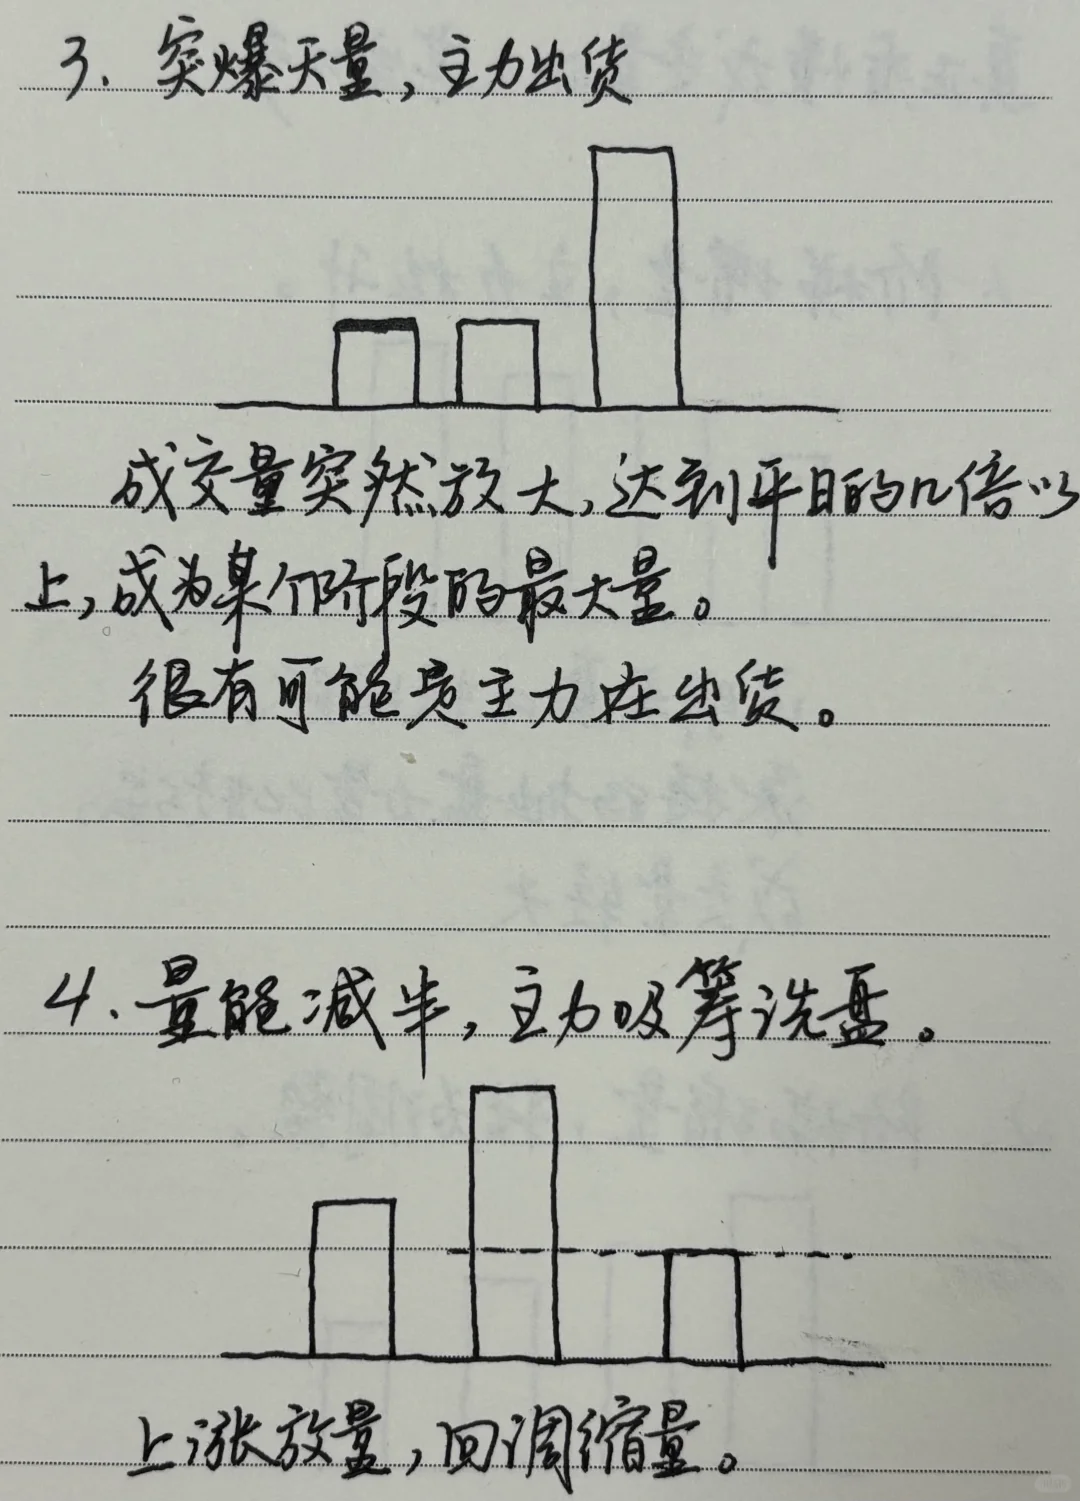 3. 突爆天量,主力出货
成交量突然放大,达到平日的几倍以
上,成为某个阶段的最大量。
很有可能是主力在出货。
4. 量能减半,主力吸筹洗盘。
上涨放量,回调缩量。